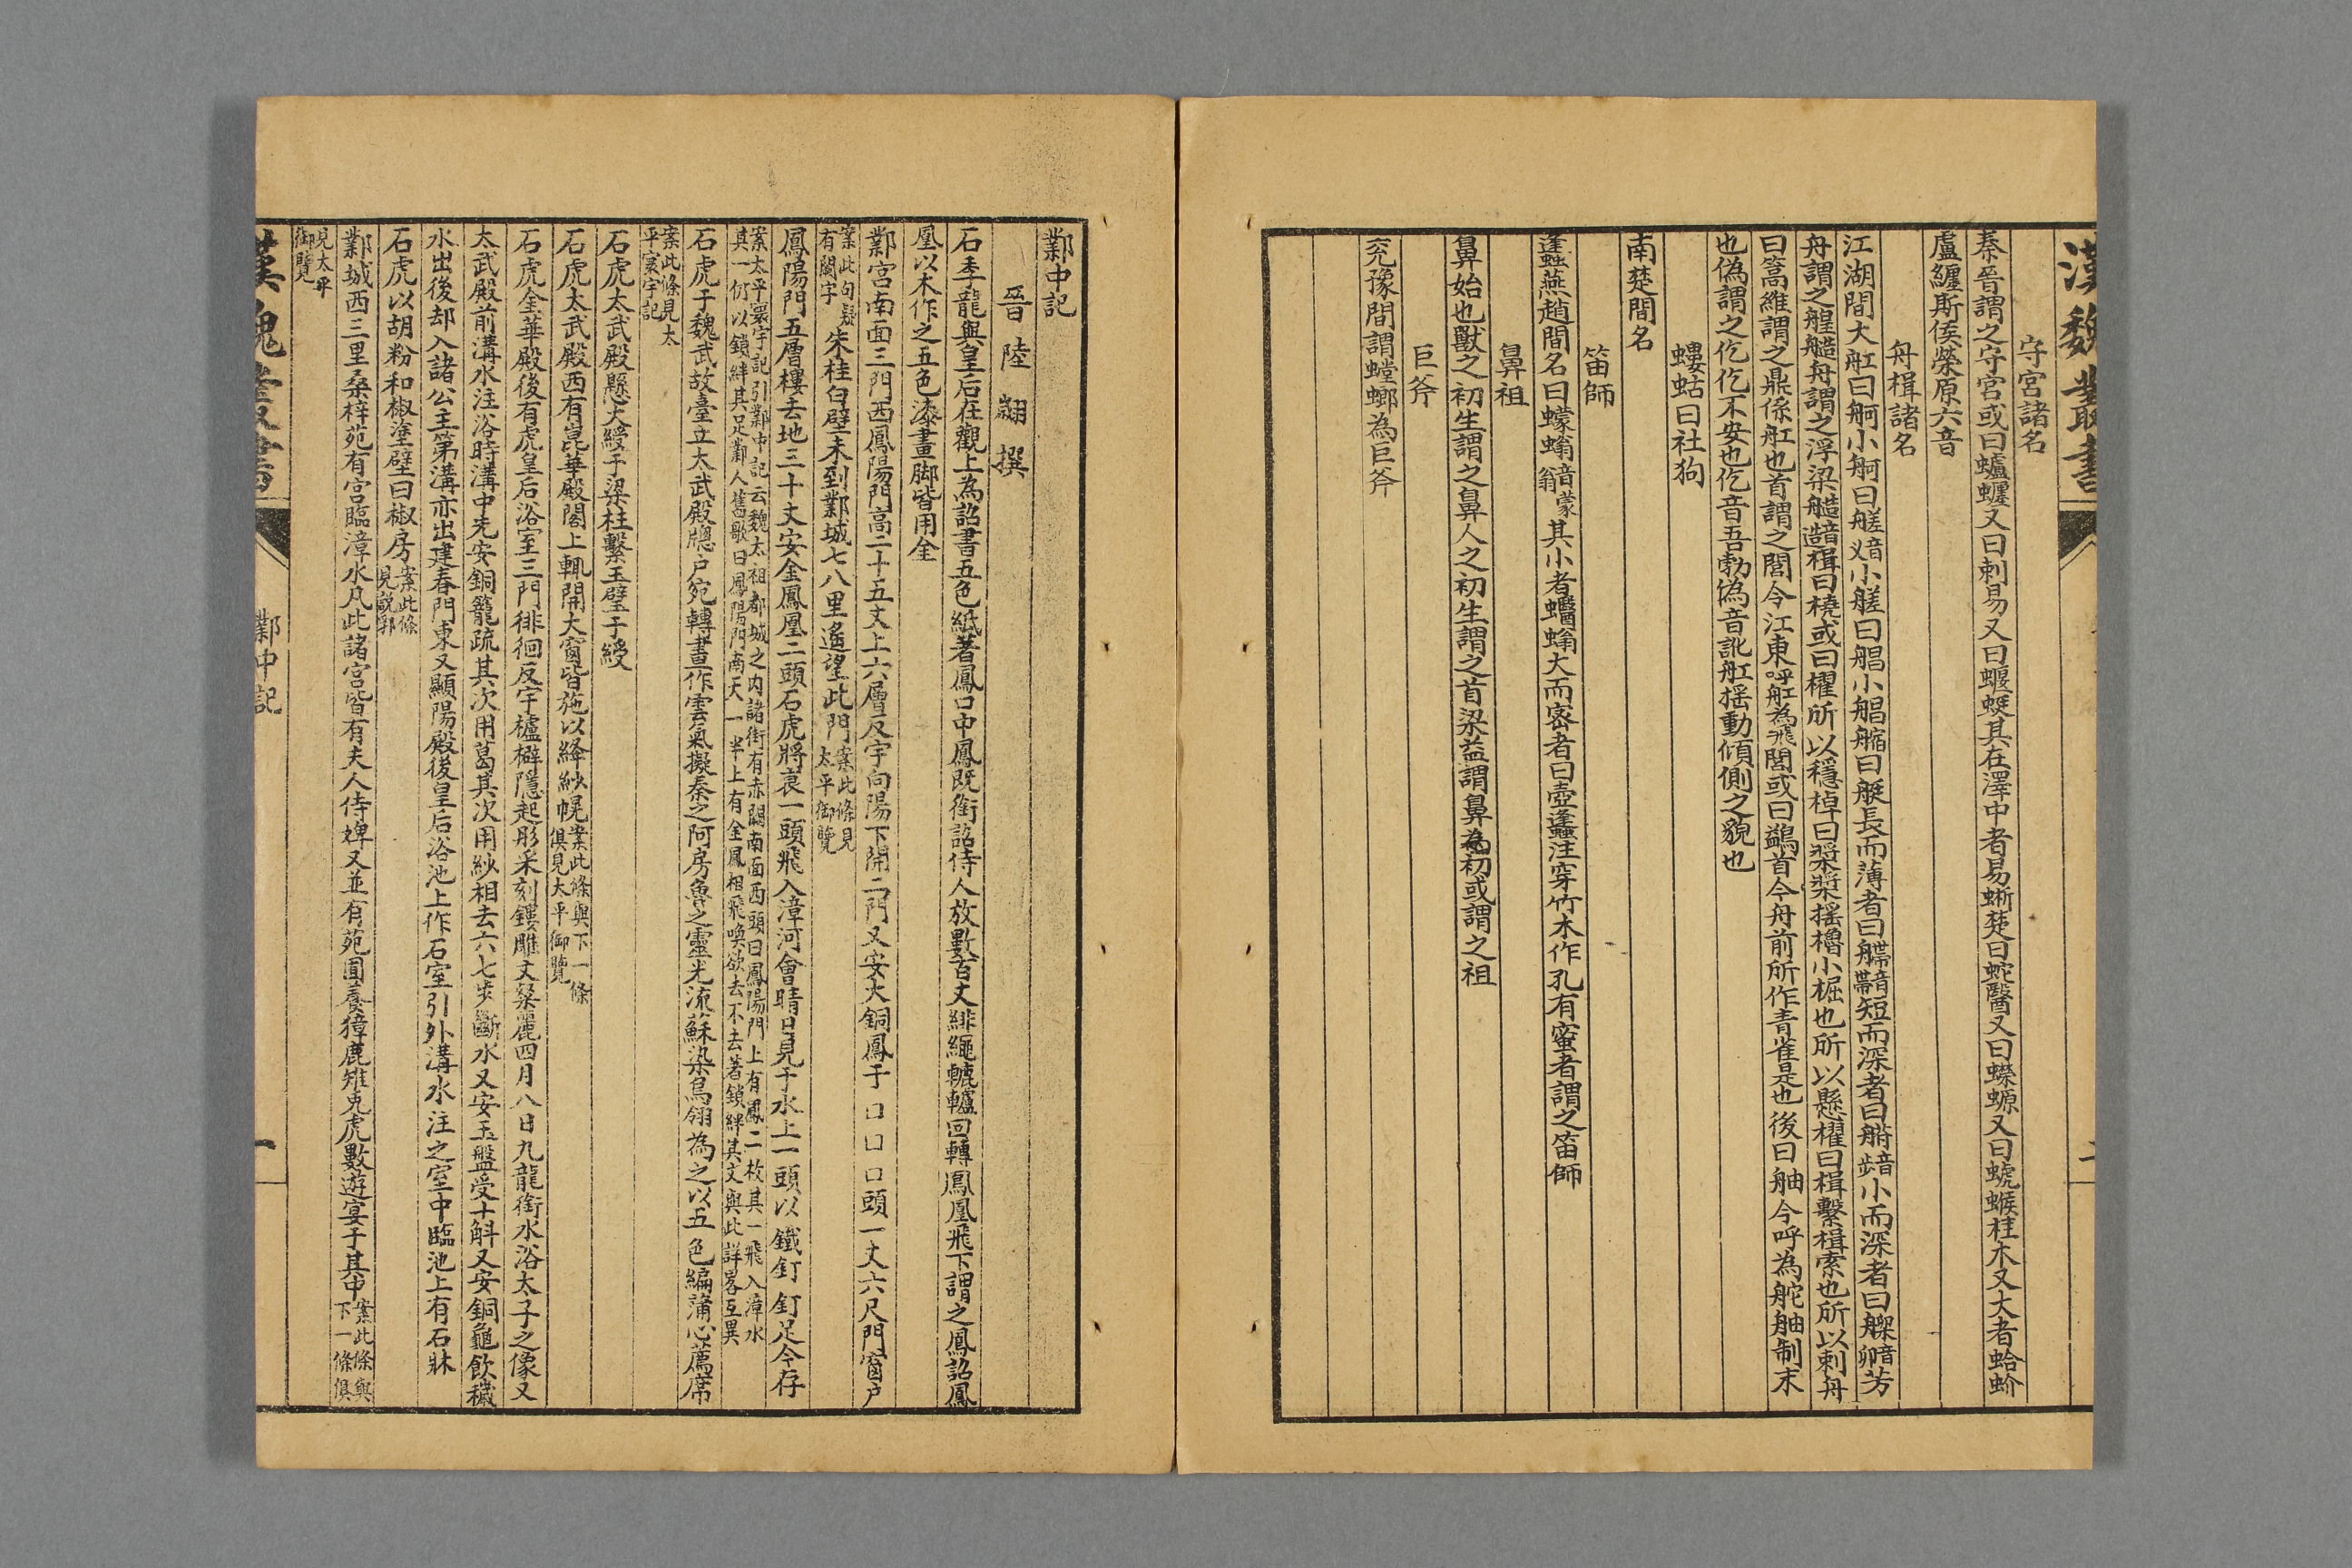 漢魏叢書
守宮諸名
秦晉謂之守宮或曰蠦𧔥又曰刺易又曰蝘蜓其在澤中者易蜥楚曰蛇醫又曰蠑螈又曰蛖蝬桂木又大者蛤蚧
盧纏斯侯榮原六音
舟楫諸名
江湖間大舡曰舸小舸曰艖音义小艖曰艒小艒艒曰艇長而薄者曰艜音帶短而深者曰䑰音步小而深者曰𦪇音卭芳
舟謂之艎艁舟謂之浮梁艁音造楫曰橈或曰櫂所以穩棹曰槳槳搖櫓小橛也所以懸櫂曰楫繫楫索也所以刺舟
曰篙維謂之鼎係舡也首謂之閤今江東呼舡為飛閤或曰鷁首今舟前所作青雀是也後曰舳今呼為舵舳制末
也偽謂之仡仡不安也仡音吾勃偽音訛舡搖動傾側之貌也
螻蛄曰社狗
南楚間名
笛師
蠭燕趙間名曰蠓螉音蒙翁其小者蠮螉大而密者曰壺蠭注穿竹木作孔有蜜者謂之笛師
鼻祖
鼻始也獸之初生謂之鼻人之初生謂之首梁益謂鼻為初或謂之祖
巨斧
兖豫間謂螳螂為巨斧
鄴中記
晉陸翽撰
石季龍與皇后在觀上為詔書五色紙著鳳口中鳳既銜詔侍人放數百丈緋繩轆轤回轉鳳凰飛下謂之鳳詔鳳
凰以木作之五色漆畫脚皆用金
鄴宮南面三門西鳳陽門高二十五丈上六層反宇向陽下開二門又安大銅鳳于口口口頭一丈六尺門窗户
案此句疑有闕字朱柱白壁未到鄴城七八里遙望此門案此條見太平御覽
鳳陽門五層樓去地三十丈安金鳳凰二頭石虎將衰一頭飛入漳河會晴日見于水上一頭以鐵釘釘足今存
案太平寰宇記引鄴中記云魏太祖都城之内諸街有赤闕南面西頭曰鳳陽門上有鳳二枚其一飛入漳水
其一仍以鎖絆其足鄴人舊歌曰鳳陽門南天一半上有金鳳相飛喚欲去不去著鎖絆其文與此詳畧互異
石虎于魏武故臺立太武殿牕户宛轉畫作雲氣擬秦之阿房魯之靈光流蘇染鳥翎為之以五色編蒲心薦席
案此條見太平寰宇記
石虎太武殿懸大綬于梁柱繫玉璧于綬
石虎太武殿西有崑華殿閣上輒開大窗皆施以絳紗幌案此條與下一條俱見太平御覽
石虎金華殿後有虎皇后浴室三門徘徊反宇櫨檘隱起彤采刻鏤雕文粲麗四月八日九龍銜水浴太子之像又
太武殿前溝水注浴時溝中先安銅籠疏其次用葛其次用紗相去六七步斷水又安玉盤受十斛又安銅龜飲穢
水出後却入諸公主第溝亦出建春門東又顯陽殿後皇后浴池上作石室引外溝水注之室中臨池上有石牀
石虎以胡粉和椒塗壁曰椒房案此條見説郛
鄴城西三里桑梓苑有宮臨漳水凡此諸宮皆有夫人侍婢又並有苑囿養獐鹿雉兔虎數遊宴于其中案此條與下一條俱
見太平御覽
漢魏叢書
鄴中記
一